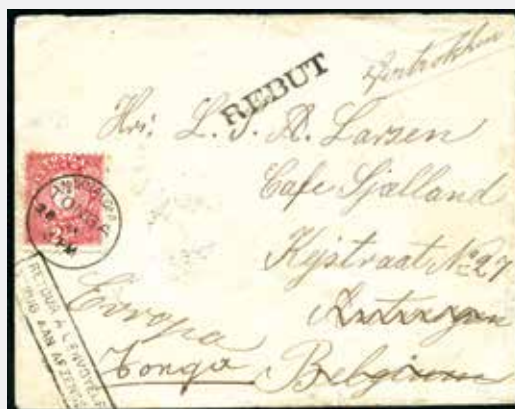 REBUT
Hrr: L. J. A. Larsen
Cafe Sjælland
Kystraat No 27
Antwerpen
Europa
Tonga Belgium
TONGA
28
PM
RETOUR À L'ENVOYEUR
AAN AFZENDER